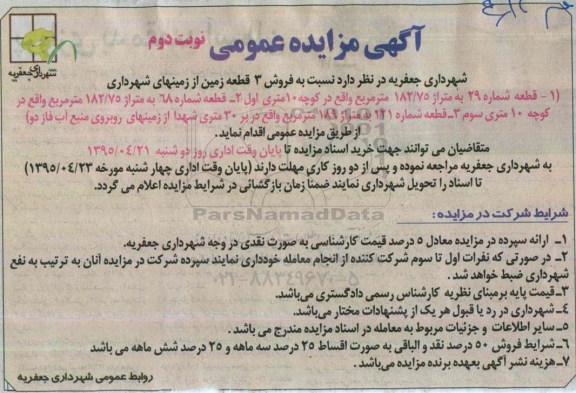 آگهی مزایده عمومی نوبت دوم
شهرداری جعفریه
شهرداری جعفریه در نظر دارد نسبت به فروش ۳ قطعه زمین از زمینهای شهرداری
(۱- قطعه شماره ۲۹ به متراژ ۱۸۲/۷۵ مترمربع واقع در کوچه ۱۰متری اول ۲- قطعه شماره ۶۸ به متراژ ۱۸۲/۷۵ مترمربع واقع در
کوچه ۱۰ متری سوم ۳- قطعه شماره ۱۲۱ به متراژ ۱۸۹ مترمربع واقع در بر ۳۰ متری شهدا از زمینهای روبروی منبع آب فاز دو)
از طریق مزایده عمومی اقدام نماید.
متقاضیان می توانند جهت خرید اسناد مزایده تا پایان وقت اداری روز دو شنبه ۱۳۹۵/۰۴/۲۱
به شهرداری جعفریه مراجعه نموده و پس از دو روز کاری مهلت دارند (پایان وقت اداری چهار شنبه مورخه ۱۳۹۵/۰۴/۲۳)
تا اسناد را تحویل شهرداری نمایند ضمنا زمان بازگشائی در شرایط مزایده اعلام می گردد.
ParsNamadData
شرایط شرکت در مزایده:
۱- ارائه سپرده در مزایده معادل ۵ درصد قیمت کارشناسی به صورت نقدی در وجه شهرداری جعفریه.
۲- در صورتی که نفرات اول تا سوم شرکت کننده از انجام معامله خودداری نمایند سپرده شرکت در مزایده آنان به ترتیب به نفع
شهرداری ضبط خواهد شد.
۰۲۱-۸۸۳۴۹۶۷۰-۵
۳- قیمت پایه برمبنای نظریه کارشناس رسمی دادگستری می‌باشد.
۴- شهرداری در رد یا قبول هر یک از پشنهادات مختار می‌باشد.
۵- سایر اطلاعات و جزئیات مربوط به معامله در اسناد مزایده مندرج می باشد.
۶- شرایط فروش ۵۰ درصد نقد و الباقی به صورت اقساط ۲۵ درصد سه ماهه و ۲۵ درصد شش ماهه می باشد
۷- هزینه نشر آگهی بعهده برنده مزایده می‌باشد.
روابط عمومی شهرداری جعفریه